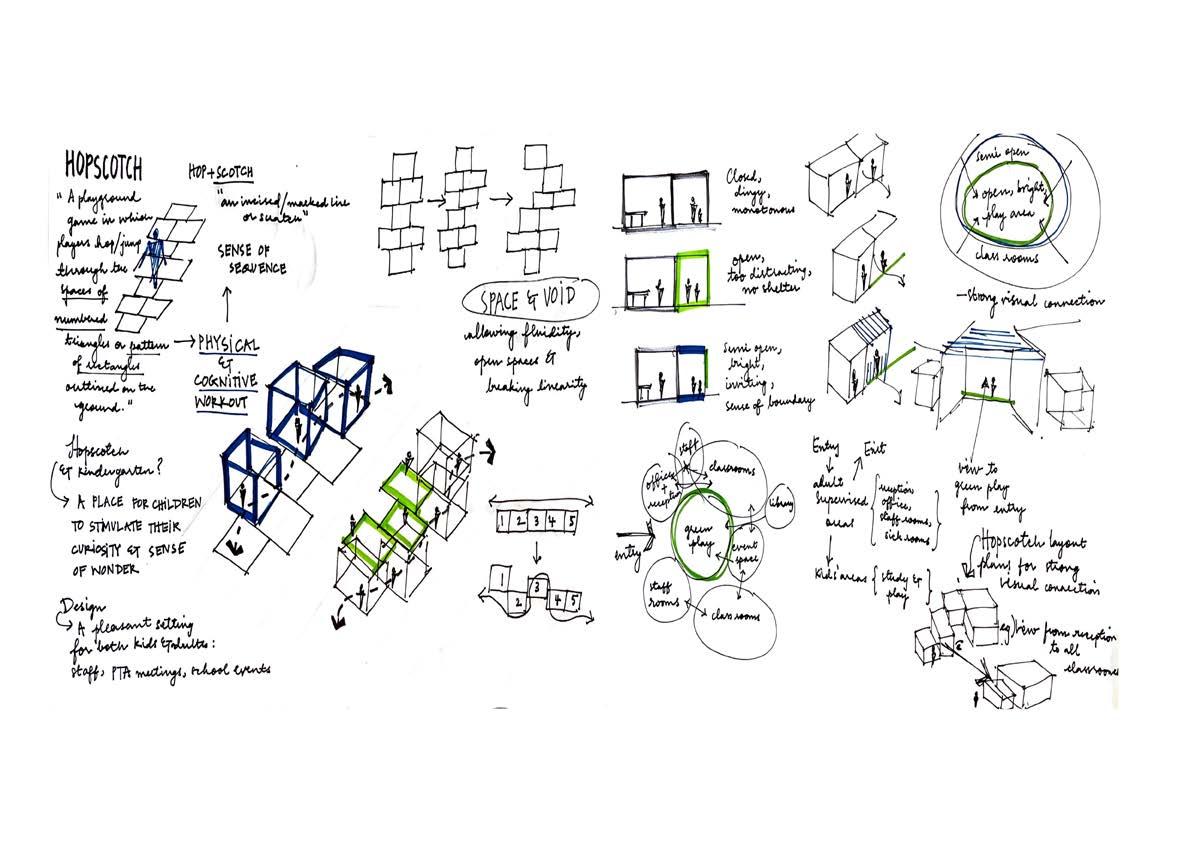 HOPSCOTCH
"A playground
game in which
players hop/jump
through the
spaces of
numbered
triangles or pattern
of rectangles
outlined on the
ground."
HOP + SCOTCH
"an incised/marked line
or
SENSE OF
SEQUENCE
PHYSICAL
&
COGNITIVE
WORKOUT
Hopscotch
& kindergarten?
A PLACE FOR CHILDREN
TO STIMULATE THEIR
CURIOSITY & SENSE
OF WONDER
Design
A pleasant setting
for both kids & adults:
staff, PTA meetings, school events
SPACE & VOID
allowing fluidity,
open spaces &
breaking linearity
1 2 3 4 5
1
2
3
4 5
Closed,
dingy,
monotonous
open,
too distracting,
no shelter
Semi open,
bright,
inviting,
sense of boundary
semi open
open, bright,
play area
classrooms
-strong visual connection
view to
green play
from entry
staff
classrooms
office
+
reception
library
green
play
event
space
entry
staff
rooms
classrooms
Entry
Exit
adult
supervised
areas
reception
office,
staff rooms,
sick rooms
kids' areas { study &
play }
Hopscotch layout
plans for strong
visual connection
eg) view from reception
to all
classrooms